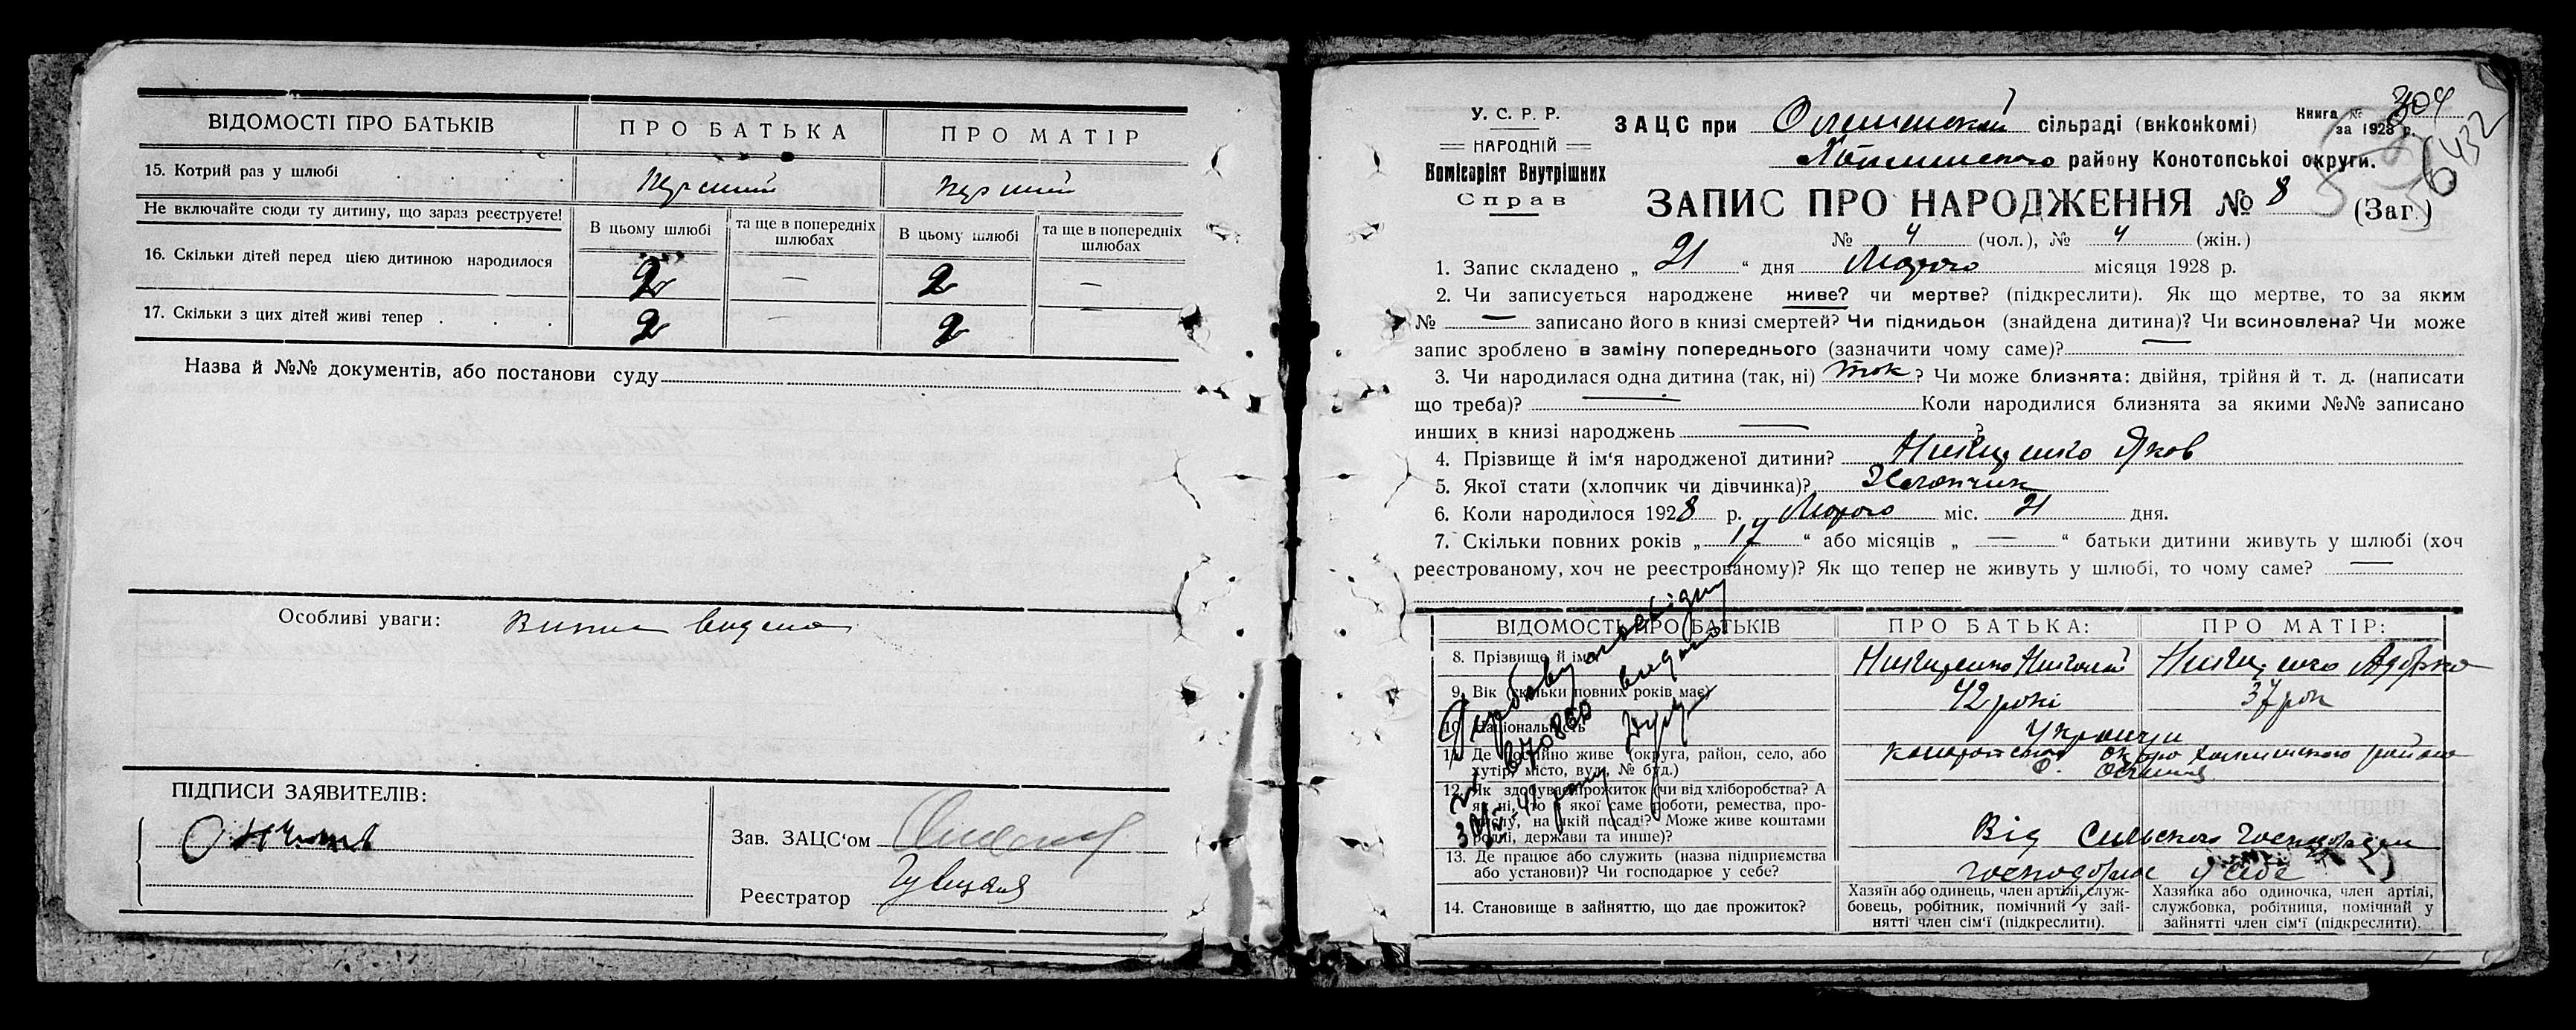 ВІДОМОСТІ ПРО БАТЬКІВ
ПРО БАТЬКА
ПРО МАТІР
15. Котрий раз у шлюбі
Перший
Перший
Не включайте сюди ту дитину, що зараз реєструєте!
В цьому шлюбі
та ще в попередніх шлюбах
В цьому шлюбі
та ще в попередніх шлюбах
16. Скільки дітей перед цією дитиною народилося
2 — 2 —
17. Скільки з цих дітей живі тепер
2 — 2 —
Назва й №№ документів, або постанови суду
Особливі уваги:
ПІДПИСИ ЗАЯВИТЕЛІВ:
Зав. ЗАЦС'ом
Реєстратор
У. С. Р. Р.
НАРОДНІЙ
Комісаріят Внутрішних
Справ
ЗАЦС при сільраді (виконкомі)
Книга № 304
за 1928 р.
району Конотопської округи.
6432
ЗАПИС ПРО НАРОДЖЕННЯ № 8 (Заг.)
№ 4 (чол.), № 4 (жін.)
1. Запис складено „ 21 “ дня Марта місяця 1928 р.
2. Чи записується народжене живе? чи мертве? (підкреслити). Як що мертве, то за яким
№ — записано його в книзі смертей? Чи підкидьок (знайдена дитина)? Чи всиновлена? Чи може
запис зроблено в заміну попереднього (зазначити чому саме)? —
3. Чи народилася одна дитина (так, ні) так? Чи може близнята: двійня, трійня й т. д. (написати
що треба)? — Коли народилися близнята за якими №№ записано
инших в книзі народжень — ?
4. Прізвище й ім'я народженої дитини? Никищенко Яков
5. Якої стати (хлопчик чи дівчинка)? Хлопчик
6. Коли народилося 1928 р. Марта міс. 21 дня.
7. Скільки повних років „ 17 “ або місяців „ — “ батьки дитини живуть у шлюбі (хоч
реєстрованому, хоч не реєстрованому)? Як що тепер не живуть у шлюбі, то чому саме? —
ВІДОМОСТІ ПРО БАТЬКІВ
ПРО БАТЬКА:
ПРО МАТІР:
8. Прізвище й ім'я
Никищенко Николай
Никищенко
9. Вік (скільки повних років має)
42 роки
37 рок
10. Національність
Украинци
11. Де постійно живе (округа, район, село, або
хутір, місто, вул., № буд.)
12. Як здобуває прожиток (чи від хліборобства? А
як ні, то з якої саме роботи, ремества, про-
мислу, на якій посаді? Може живе коштами
рідні, держави та инше)?
Від Сильского
13. Де працює або служить (назва підприємства
або установи)? Чи господарює у себе?
у себе
14. Становище в зайняттю, що дає прожиток?
Хазяїн або одинець, член артілі, служ-
бовець, робітник, помічний у зай-
нятті член сім'ї (підкреслити).
Хазяйка або одиночка, член артілі,
службовка, робітниця, помічний у
зайнятті член сім'ї (підкреслити).